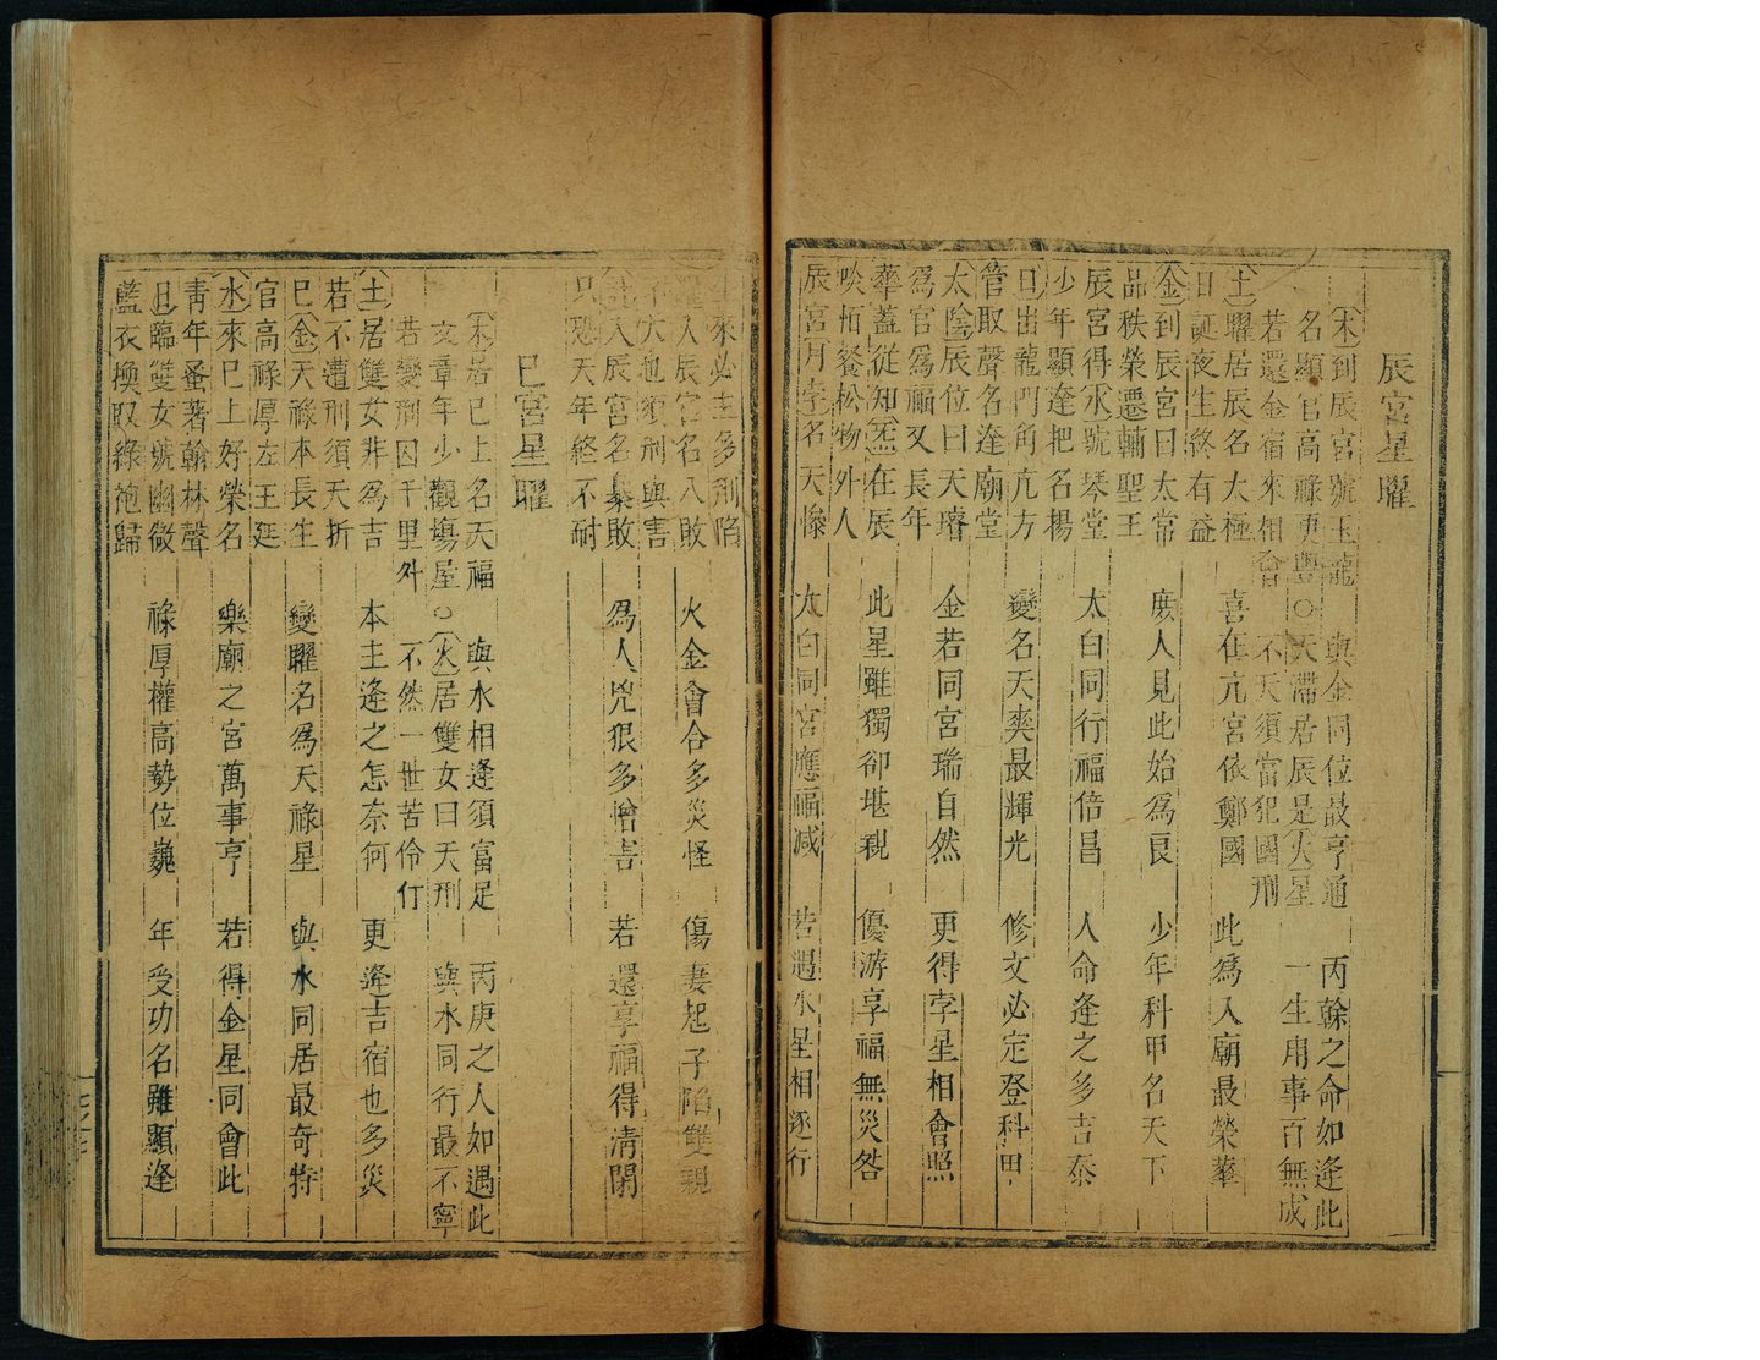 辰宮星曜
木到辰宮號玉龍 與金同位最亨通 丙幹之命如逢此
名顯官高祿更豐○天滯居辰是火星 一生用事百無成
若還金宿來相會 不夭須當犯國刑
土曜居辰名大極 喜在亢宮依鄭國 此為入廟最榮華
日誕夜生終有益
金到辰宮曰太常 庶人見此始為良 少年科甲名天下
品秩榮遷輔聖王
辰宮得水號琴堂 太白同行福倍昌 人命逢之多吉泰
少年顯達把名揚
日出龍門角亢方 變名天爽最輝光 修文必定登科甲
管取聲名達廟堂
太陰辰位曰天璿 金若同宮瑞自然 更得孛星相會照
為官為福又長年
華蓋從知炁在辰 此星雖獨卻堪親 優游享福無災咎
啖栢餐松物外人
辰宮月孛名天慘 太白同宮應福減 若遇水星相逐行
來必主多刑陷
入辰宮名八敗 火金會合多災怪 傷妻起子陷雙親
也須刑與害
入辰宮名梟敗 為人兇狠多憎害 若還享福得清閑
只恐天年終不耐
巳宮星曜
木居巳上名天福 與水相逢須富足 丙庚之人如遇此
文章年少觀場屋○火居雙女曰天刑 與水同行最不寧
若變刑囚千里外 不然一世苦伶仃
土居雙女非為吉 本主逢之怎奈何 更逢吉宿也多災
若不遭刑須夭折
巳金天祿本長生 變曜名為天祿星 與水同居最奇特
官高祿厚左王廷
水來巳上好榮名 樂廟之宮萬事亨 若得金星同會此
青年蚤著翰林聲
日臨雙女號幽微 祿厚權高勢位巍 年受功名雖顯逢
藍衣換取綠袍歸